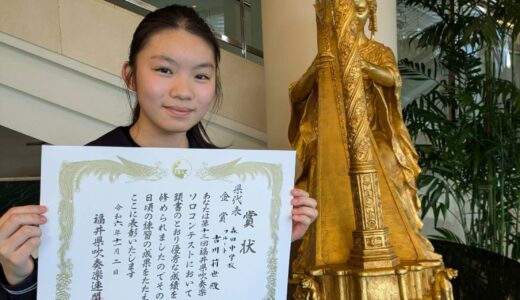 賞状
県代表
金賞
森田中学校
フルート
吉川莉世殿
あなたは第十三回福井県吹奏楽
ソロコンテストにおいて
頭書のとおり優秀な成績を
修められましたのでその
日頃の練習の成果をたたえ
ここに表彰いたします
令和六年十二月一日
福井県吹奏楽連盟